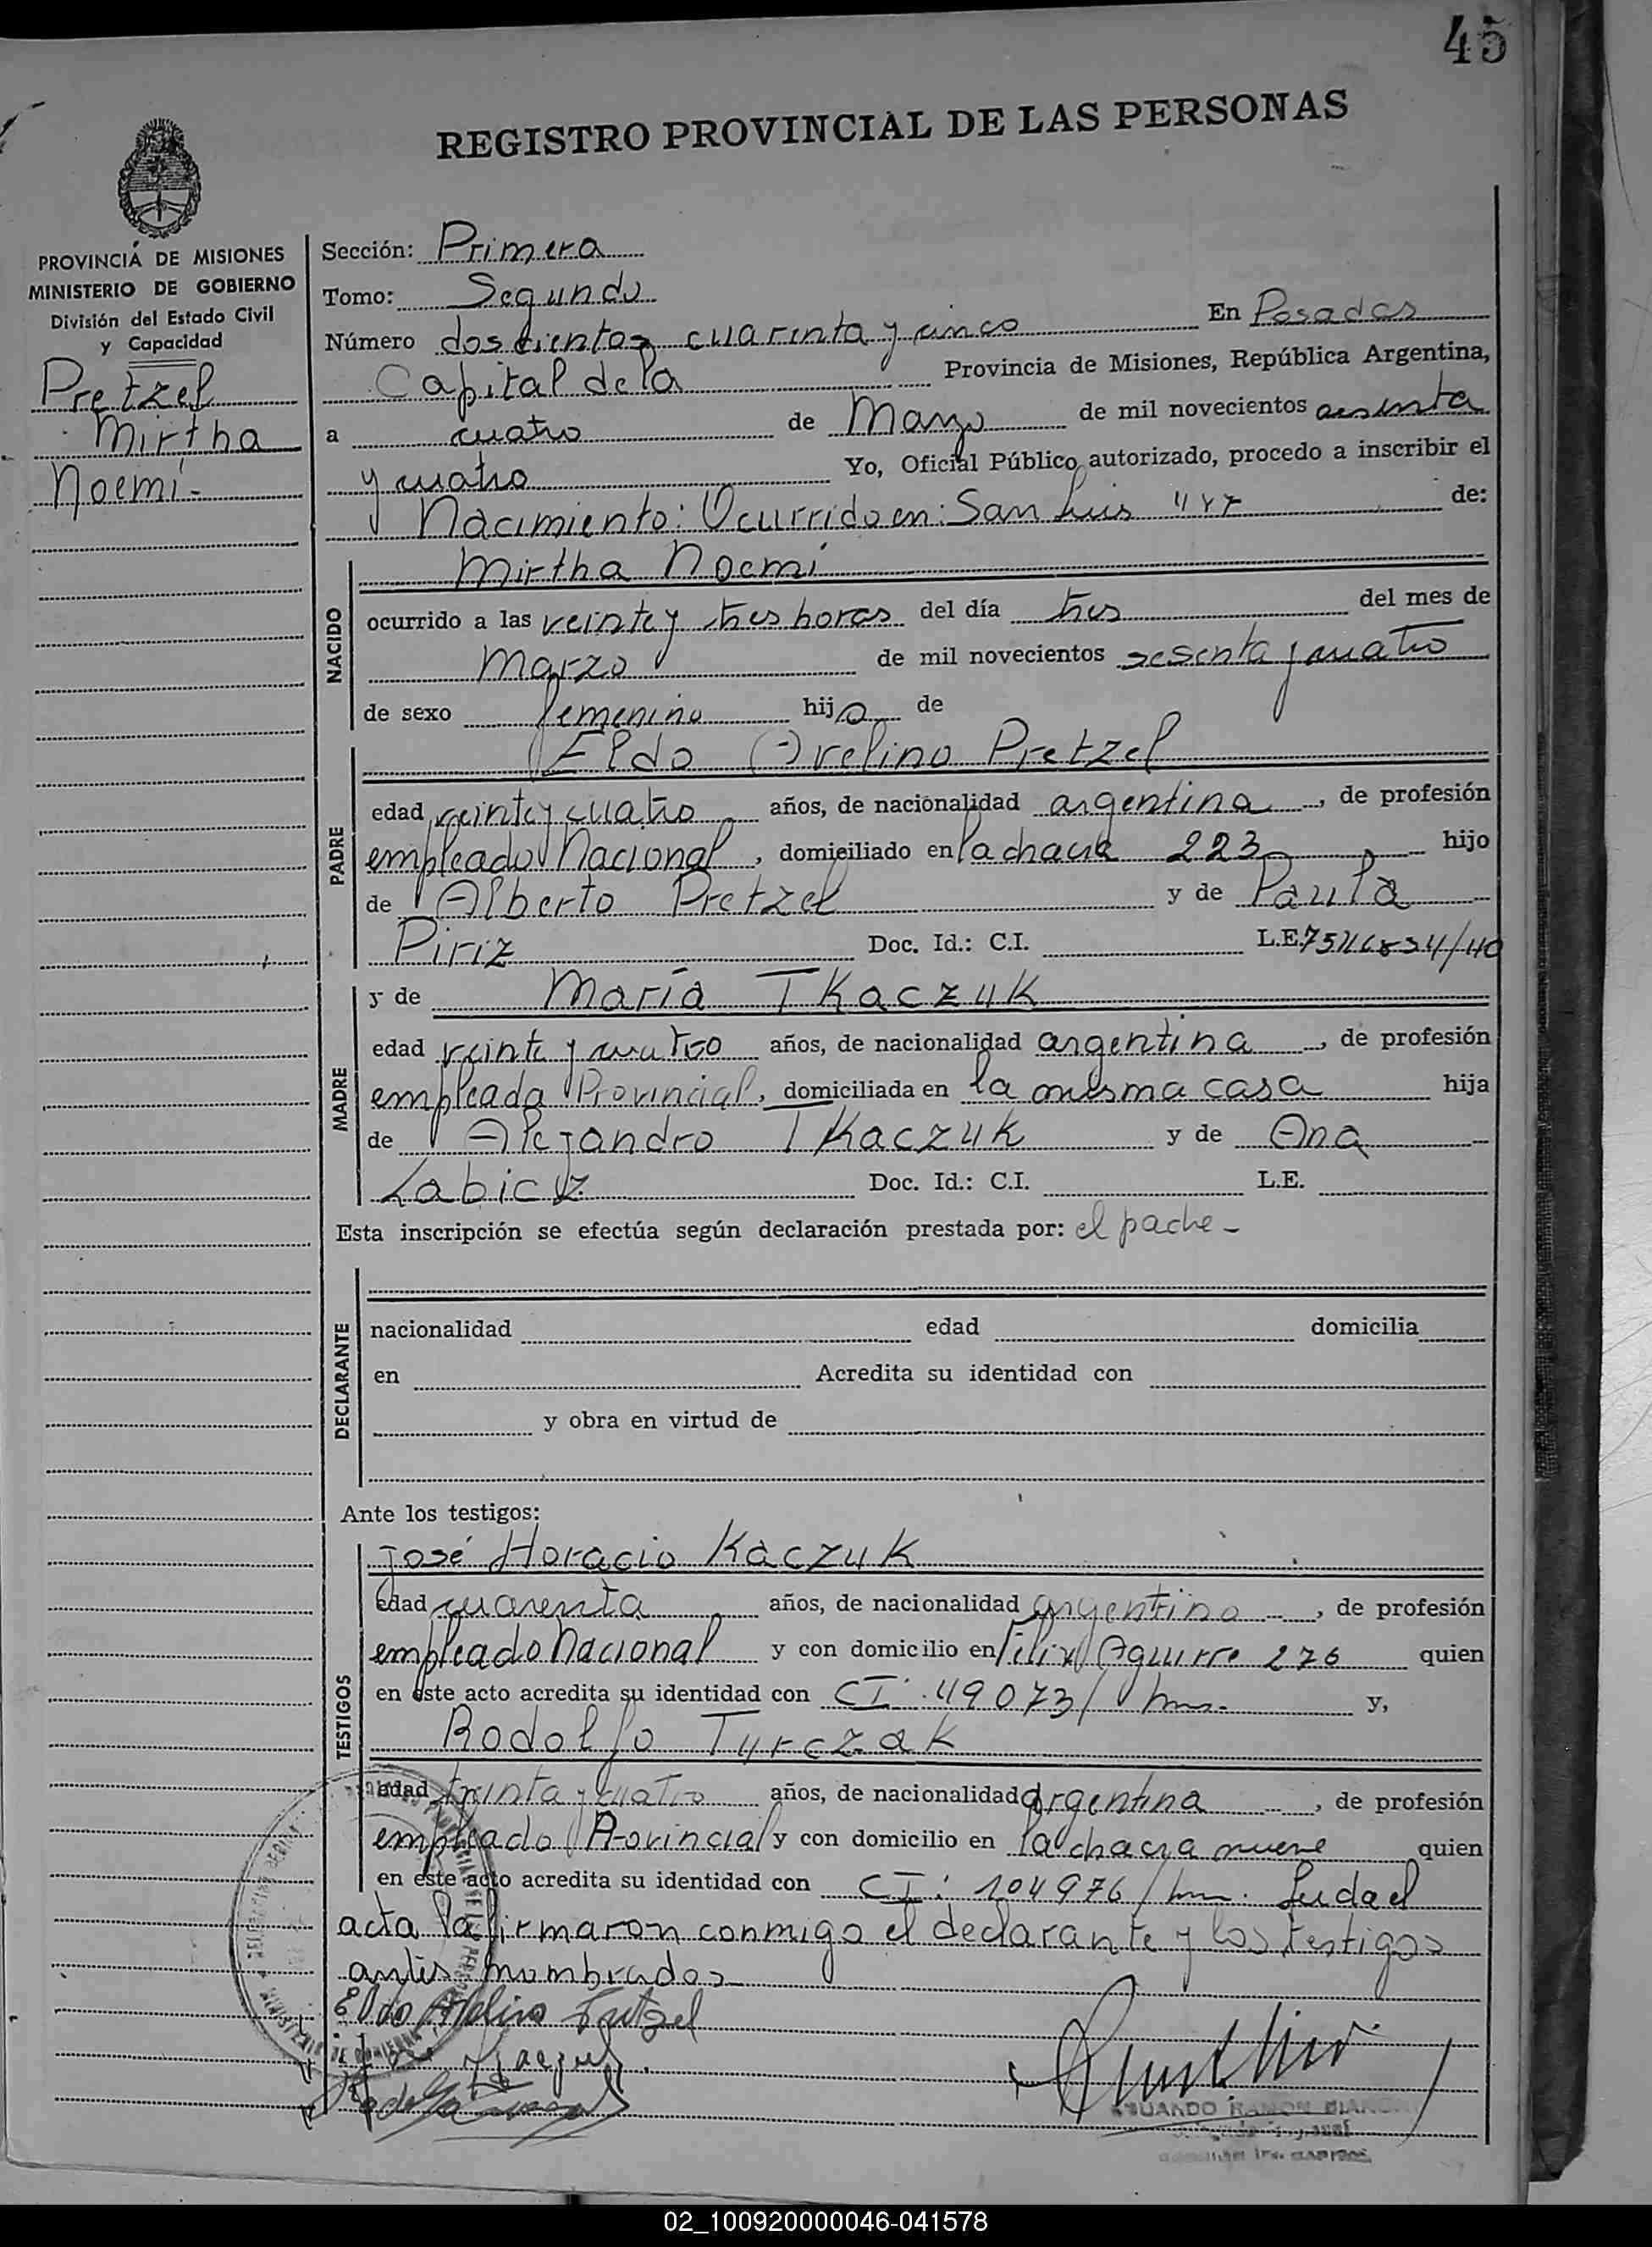 45
REGISTRO PROVINCIAL DE LAS PERSONAS
PROVINCIA DE MISIONES
MINISTERIO DE GOBIERNO
División del Estado Civil
y Capacidad
Pretzel
Mirtha
Noemí-
Sección: Primera
Tomo: Segundo
Número doscientos cuarenta y cinco En Posadas
Capital de la Provincia de Misiones, República Argentina,
a cuatro de Marzo de mil novecientos sesenta
y cuatro Yo, Oficial Público autorizado, procedo a inscribir el
Nacimiento: Ocurrido en: San Luis de:
NACIDO
Mirtha Noemí
ocurrido a las veinte y tres horas del día tres del mes de
Marzo de mil novecientos sesenta y cuatro
de sexo femenino hija de
PADRE
Eldo Avelino Pretzel
edad veinte y cuatro años, de nacionalidad argentina, de profesión
empleado Nacional, domiciliado en la chacra 223 hijo
de Alberto Pretzel y de Paula
Piriz Doc. Id.: C.I. L.E.
MADRE
y de María TKaczuk
edad veinte y cuatro años, de nacionalidad argentina, de profesión
empleada Provincial, domiciliada en la misma casa hija
de Alejandro TKaczuk y de Ana
Labicz Doc. Id.: C.I. L.E.
Esta inscripción se efectúa según declaración prestada por: el padre-
DECLARANTE
nacionalidad edad domicilia
en Acredita su identidad con
y obra en virtud de
Ante los testigos:
TESTIGOS
José Horacio Kaczuk
edad cuarenta años, de nacionalidad argentina, de profesión
empleado Nacional y con domicilio en Félix Aguirre 276 quien
en este acto acredita su identidad con CI. 49073/ y,
Rodolfo Turczak
edad treinta y cuatro años, de nacionalidad argentina, de profesión
empleado Provincial y con domicilio en la chacra nueve quien
en este acto acredita su identidad con CI: 104976/ Leida el
acta la firmaron conmigo el declarante y los testigos
antes nombrados
Eldo Avelino Pretzel
02_100920000046-041578